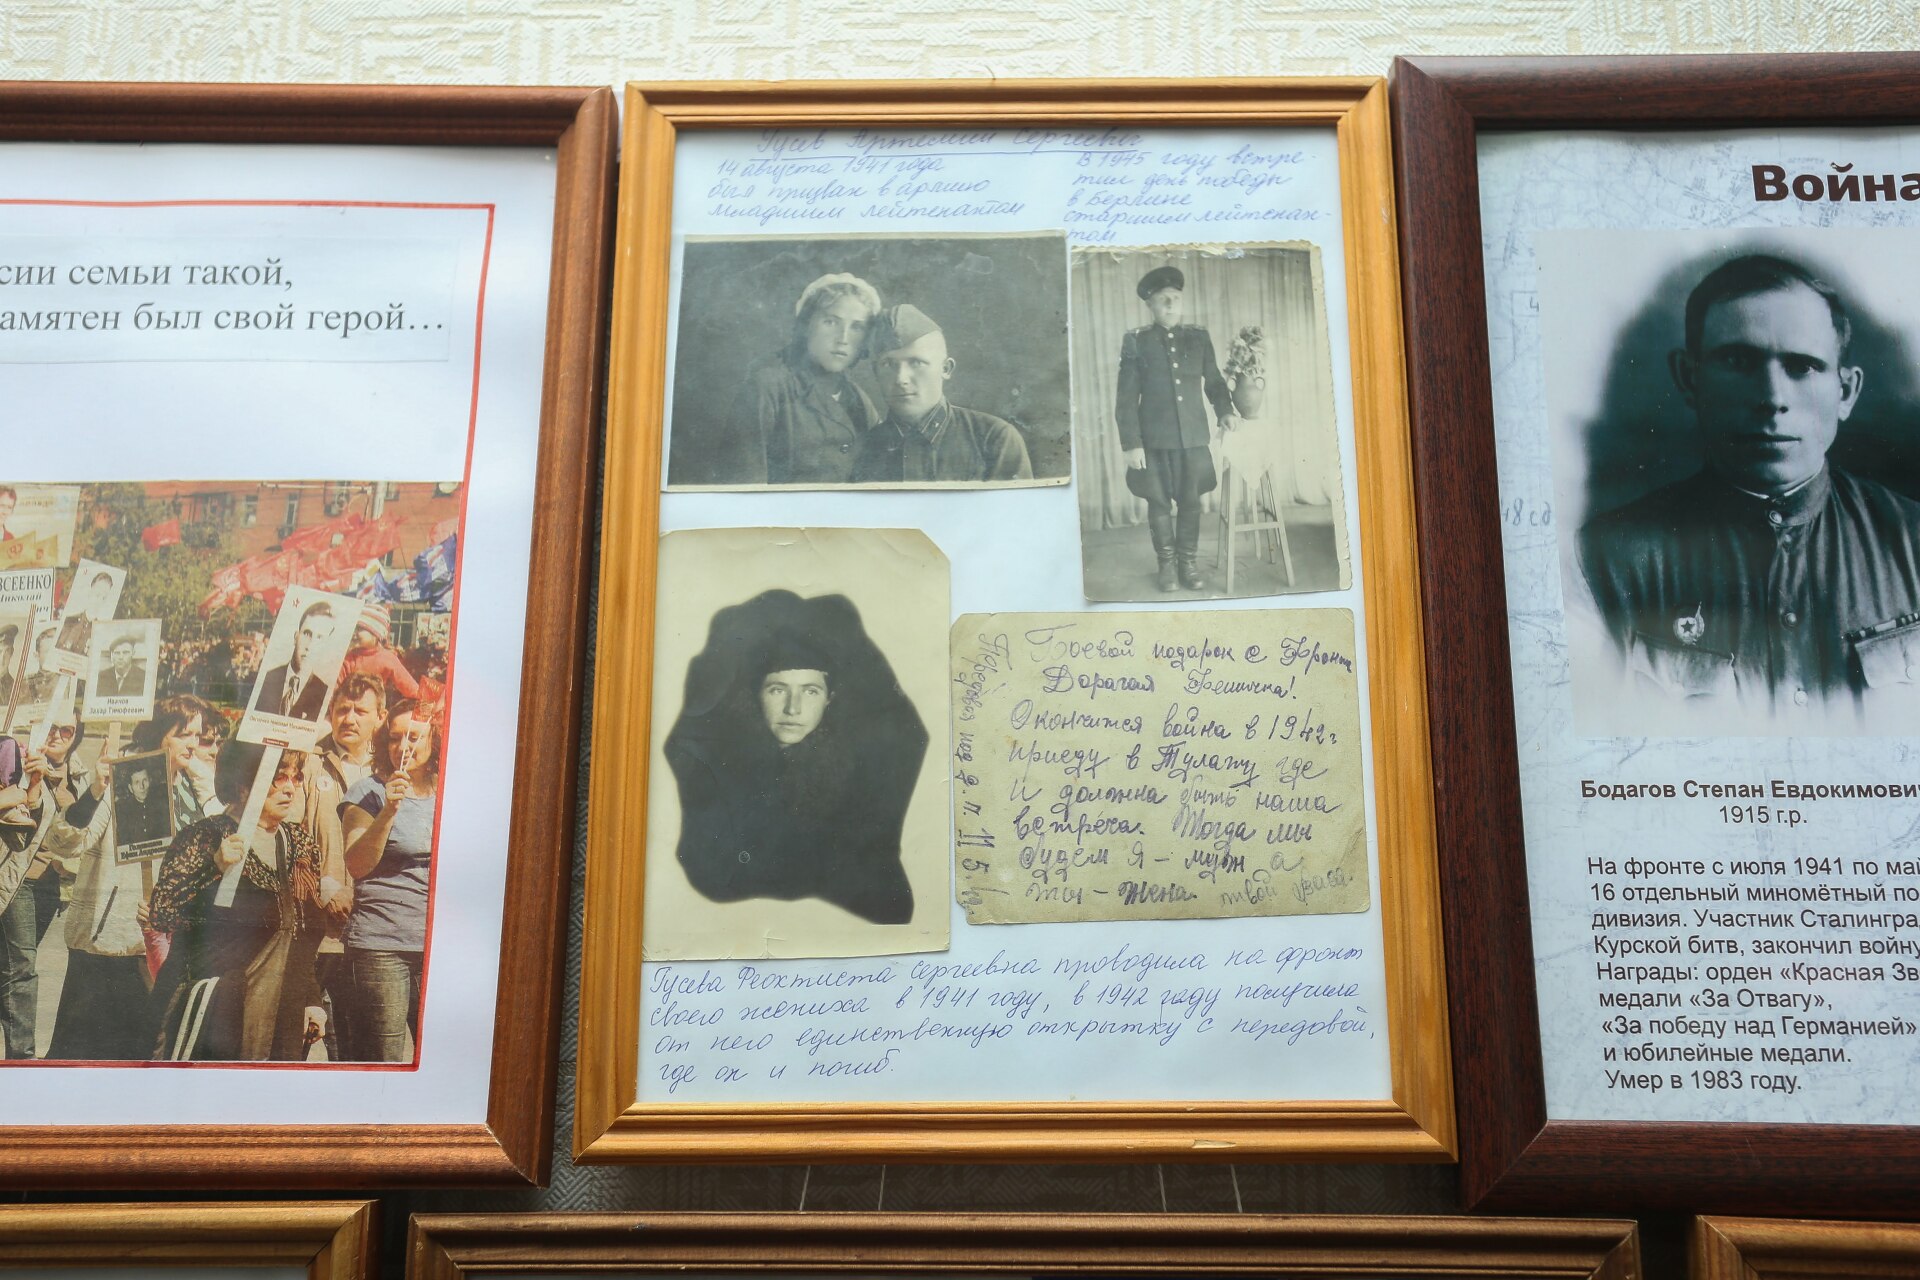 сии семьи такой,
амятен был свой герой…
ВСЕЕНКО
Николай
Иванов
Захар Тимофеевич
Гусев Артемий Сергеевич
14 августа 1941 года
был призван в армию
младшим лейтенантом
В 1945 году встре-
тил день победы
в Берлине
старшим лейтенан-
том
Боевой подарок с Фронта
Дорагая Фешичка!
Окончится война в 1942 г
приеду в Тулажу где
И должна быть наша
встреча. Тогда мы
будем Я – муж а
ты – жена. твой
Передовая
Гусева Феоктиста Сергеевна проводила на фронт
своего жениха в 1941 году, в 1942 году получила
от него единственную открытку с передовой,
где он и погиб.
Война
48 сд
Бодагов Степан Евдокимович
1915 г.р.
На фронте с июля 1941 по май
16 отдельный миномётный по
дивизия. Участник Сталингра
Курской битв, закончил войну
Награды: орден «Красная Зв
медали «За Отвагу»,
«За победу над Германией»
и юбилейные медали.
Умер в 1983 году.